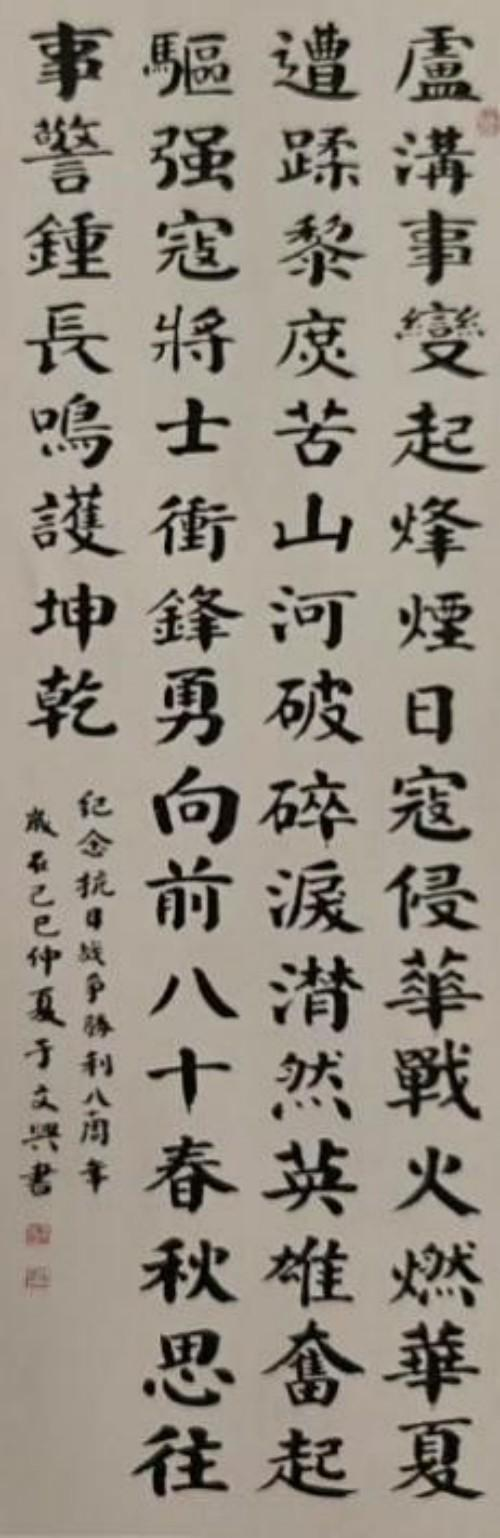 盧溝事變起烽煙日寇侵華戰火燃華夏
遭蹂黎庶苦山河破碎淚潸然英雄奮起
驅强寇將士衝鋒勇向前八十春秋思往
事警鍾長鳴護坤乾
纪念抗日战争勝利八十周年
歲在己巳仲夏于文興书